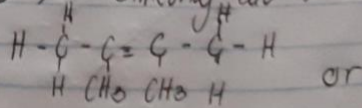 H H
H - C - C = C - C - H
H CH3 CH3 H
or